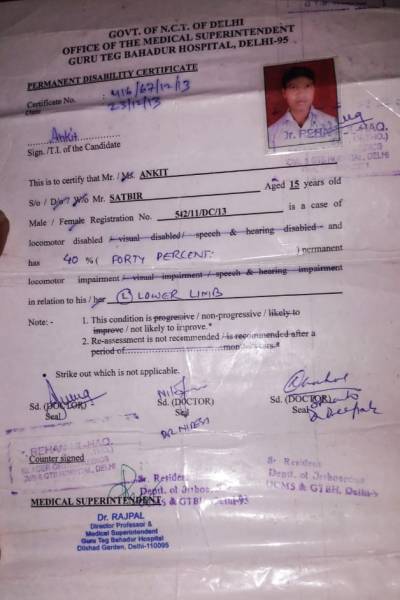 GOVT. OF N.C.T. OF DELHI
OFFICE OF THE MEDICAL SUPERINTENDENT
GURU TEG BAHADUR HOSPITAL, DELHI-95
PERMANENT DISABILITY CERTIFICATE
Certificate No. : 416/67/12/13
Date 23/12/13
Ankit
Sign./T.I. of the Candidate
This is to certify that Mr / Ms ANKIT
S/o / D/o / W/o Mr. SATBIR Aged 15 years old
Male / Female Registration No. 542/11/DC/13 is a case of
locomotor disabled / visual disabled / speech & hearing disabled and
has 40 % ( FORTY PERCENT. ) permanent
locomotor impairment / visual impairment / speech & hearing impairment
in relation to his / her (L) LOWER LIMB
Note: - 1. This condition is progressive / non-progressive / likely to
improve / not likely to improve.*
2. Re-assessment is not recommended / is recommended after a
period of months/years.*
• Strike out which is not applicable.
Sd. (DOCTOR) Sd. (DOCTOR) Sd. (DOCTOR)
Seal Seal Seal
DR NITESH
Dr Deepak
REHAN-UL-HAQ.
UCMS & GTB HOSPITAL, DELHI
Counter signed
Sr. Resident
Deptt. of Orthopaedics
UCMS & GTBH, Delhi-95
Sr. Resident
Deptt. of Orthopaedics
UCMS & GTBH, Delhi-95
MEDICAL SUPERINTENDENT
Dr. RAJPAL
Director Professor &
Medical Superintendent
Guru Teg Bahadur Hospital
Dilshad Garden, Delhi-110095